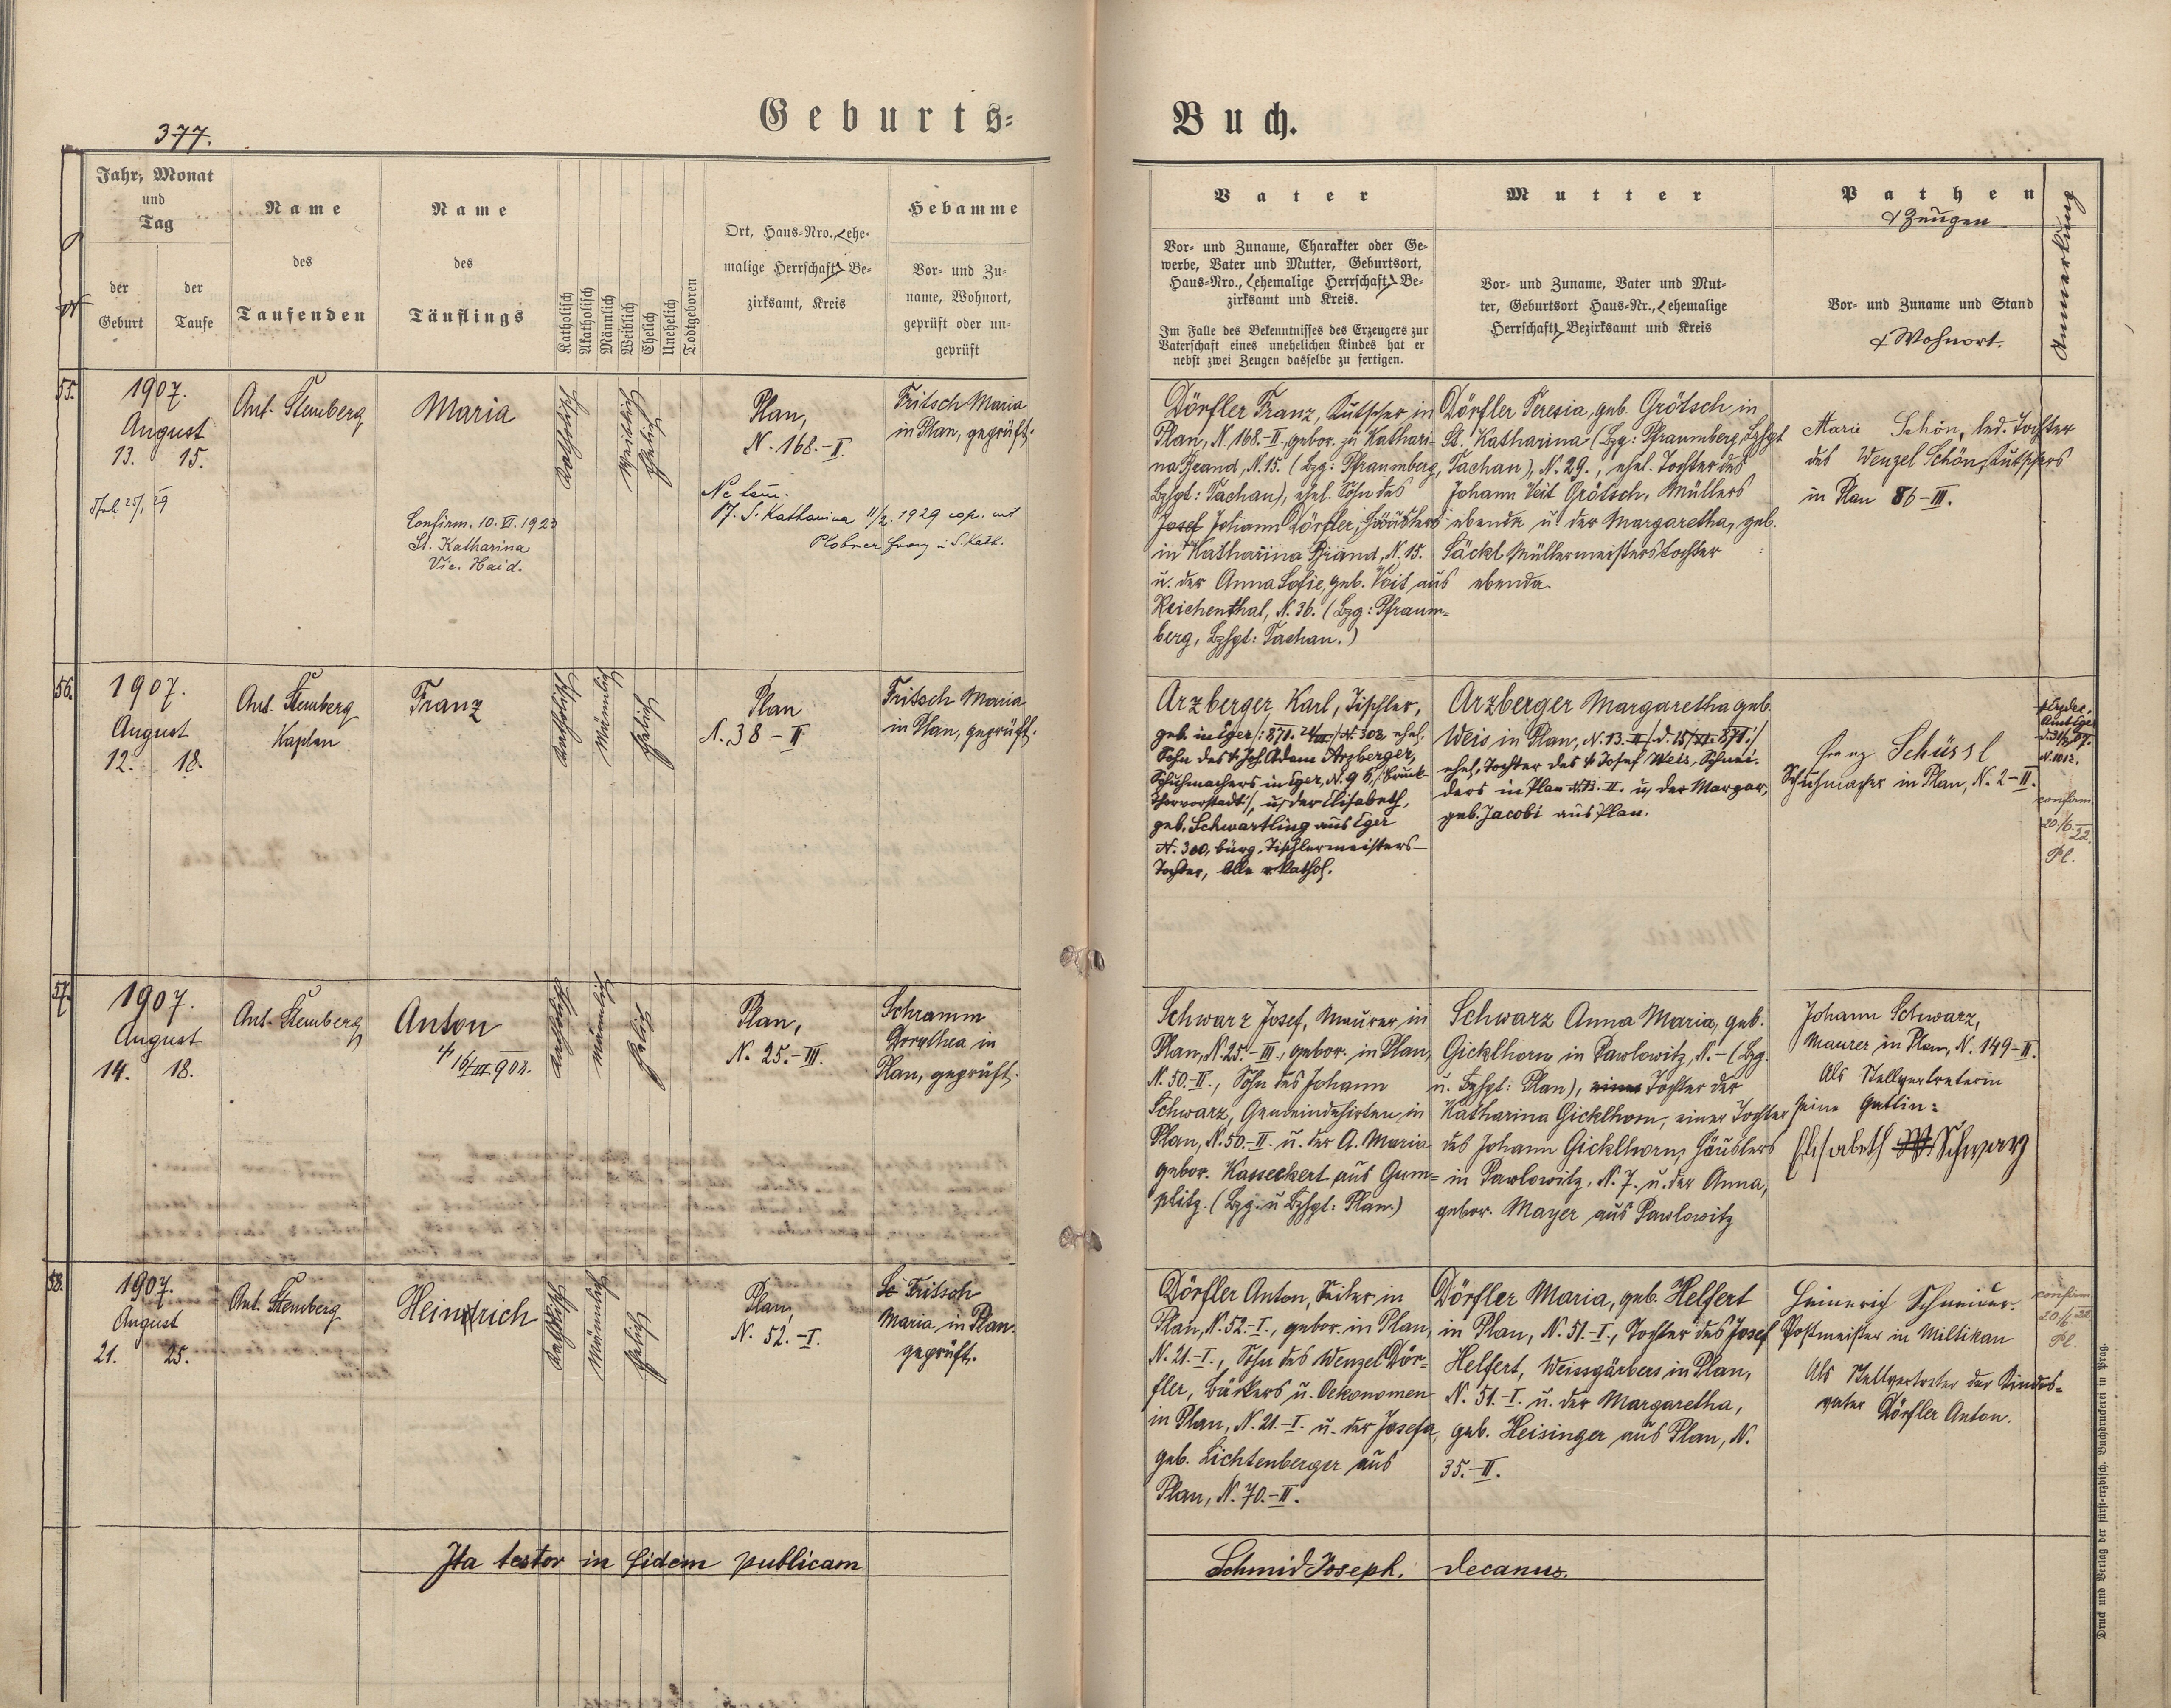 377.
Geburts-
Buch.
Jahr, Monat
und
Tag
der
Geburt
der
Taufe
Name
des
Taufenden
Name
des
Täuflings
Katholisch
Akatholisch
Männlich
Weiblich
Ehelich
Unehelich
Todtgeboren
Ort, Haus-Nro. (ehe-
malige Herrschaft) Be-
zirksamt, Kreis
Hebamme
Vor- und Zu-
name, Wohnort,
geprüft oder un-
geprüft
Vater
Vor- und Zuname, Charakter oder Ge-
werbe, Vater und Mutter, Geburtsort,
Haus-Nro., (ehemalige Herrschaft) Be-
zirksamt und Kreis.
Im Falle des Bekenntnisses des Erzeugers zur
Vaterschaft eines unehelichen Kindes hat er
nebst zwei Zeugen dasselbe zu fertigen.
Mutter
Vor- und Zuname, Vater und Mut-
ter, Geburtsort Haus-Nr., (ehemalige
Herrschaft) Bezirksamt und Kreis
Pathen
& Zeugen
Vor- und Zuname und Stand
& Wohnort.
Anmerkung
55.
1907.
August
13. 15.
Ant. Stemberg
Maria
Confirm. 10. VI. 1923
St. Katharina
Vic. Haid.
Katholisch
Weiblich
Ehelich
Plan,
N. 168.-II.
S. Katharina 11/2. 1929 cop. mit
Fritsch Maria
in Plan, geprüft.
Dörfler Franz, Kutscher in
Plan, N. 168.-II, gebor. zu Kathari-
na Brand, N. 15. (Bzg: Pfraumberg,
Bzhgt: Tachau), ehel. Sohn des
Josef Johann Dörfler, Häuslers
in Katharina Brand, N. 15.
u. der Anna Sofie, geb. Voit aus
Reichenthal, N. 36. (Bzg: Pfraum-
berg, Bzhgt: Tachau.)
Dörfler Teresia, geb. Grötsch in
St. Katharina (Bzg: Pfraumberg, Bzhgt
Tachau), N. 29., ehel. Tochter des
Johann Veit Grötsch, Müllers
ebenda u. der Margaretha, geb.
Säckl Müllermeisterstochter
ebenda.
Marie Schön, led. Tochter
des Wenzel Schön, Kutschers
in Plan 86-III.
56.
1907.
August
12. 18.
Ant. Stemberg
Kaplan
Franz
Katholisch
Männlich
Ehelich
Plan
N. 38 - II.
Fritsch Maria
in Plan, geprüft.
Arzberger Karl, Tischler,
geb. in Eger /: 871. 24/III :/ N. 302, ehel.
Sohn des + Joh. Adam Arzberger,
Schuhmachers in Eger, N. 96, /: Bruck-
thorvorstadt :/, u. der Elisabeth,
geb. Schwartling aus Eger
N. 300, bürg. Tischlermeisters-
Tochter, Alle r. kathol.
Arzberger Margaretha geb.
Weis in Plan, N. 13. II /: d. 15/XI. 871 :/
ehel. Tochter des + Josef Weis, Schnei-
ders in Plan N. 13. II. u. der Margar,
geb. Jacobi aus Plan.
Franz Schüssl
Schuhmacher in Plan, N. 2-II.
confirm.
20/6. 22.
Pl.
57.
1907.
August
14. 18.
Ant. Stemberg
Anton
+ 16/III 908.
Katholisch
Männlich
Ehelich
Plan,
N. 25.-III.
Schramm
Dorothea in
Plan, geprüft.
Schwarz Josef, Maurer, in
Plan, N. 25.-III., gebor. in Plan,
N. 50.-II., Sohn des Johann
Schwarz, Gemeindehirten, in
Plan, N. 50.-II. u. der A. Maria
gebor. Kasseckert aus Gum-
plitz. (Bzg. u Bzhgt: Plan.)
Schwarz Anna Maria, geb.
Gicklhorn in Pawlowitz, N. - (Bzg.
u. Bzhgt: Plan), einer Tochter der
Katharina Gicklhorn, einer Tochter
des Johann Gicklhorn, Häuslers
in Pawlowitz, N. 7. u. der Anna,
gebor. Mayer aus Pawlowitz
Johann Schwarz,
Maurer in Plan, N. 149-II.
Als Stellvertreterin
seine Gattin:
Elisabeth Schwarz
58.
1907.
August
21. 25.
Ant. Stemberg
Heinrich
Katholisch
Männlich
Ehelich
Plan,
N. 52.-I.
Fritsch
Maria, in Plan.
geprüft.
Dörfler Anton, Seiler, in
Plan, N. 52.-I., gebor. in Plan,
N. 21.-I., Sohn des Wenzel Dör-
fler, Bäckers u. Oekonomen
in Plan, N. 21.-I. u. der Josefa,
geb. Lichtenberger aus
Plan, N. 70.-II.
Dörfler Maria, geb. Helfert
in Plan, N. 51.-I., Tochter des Josef
Helfert, Weissgärbers in Plan,
N. 51.-I. u. der Margaretha,
geb. Heisinger aus Plan, N.
35.-II.
Heinrich Schneider.
Postmeister in Miltikau
Als Stellvertreter der Kindes-
vater Dörfler Anton.
confirm.
20/6. 22.
Pl.
Ita testor in fidem publicam
Schmid Joseph. Decanus.
Druck und Verlag der fürst-erzbisch. Buchdruckerei in Prag.